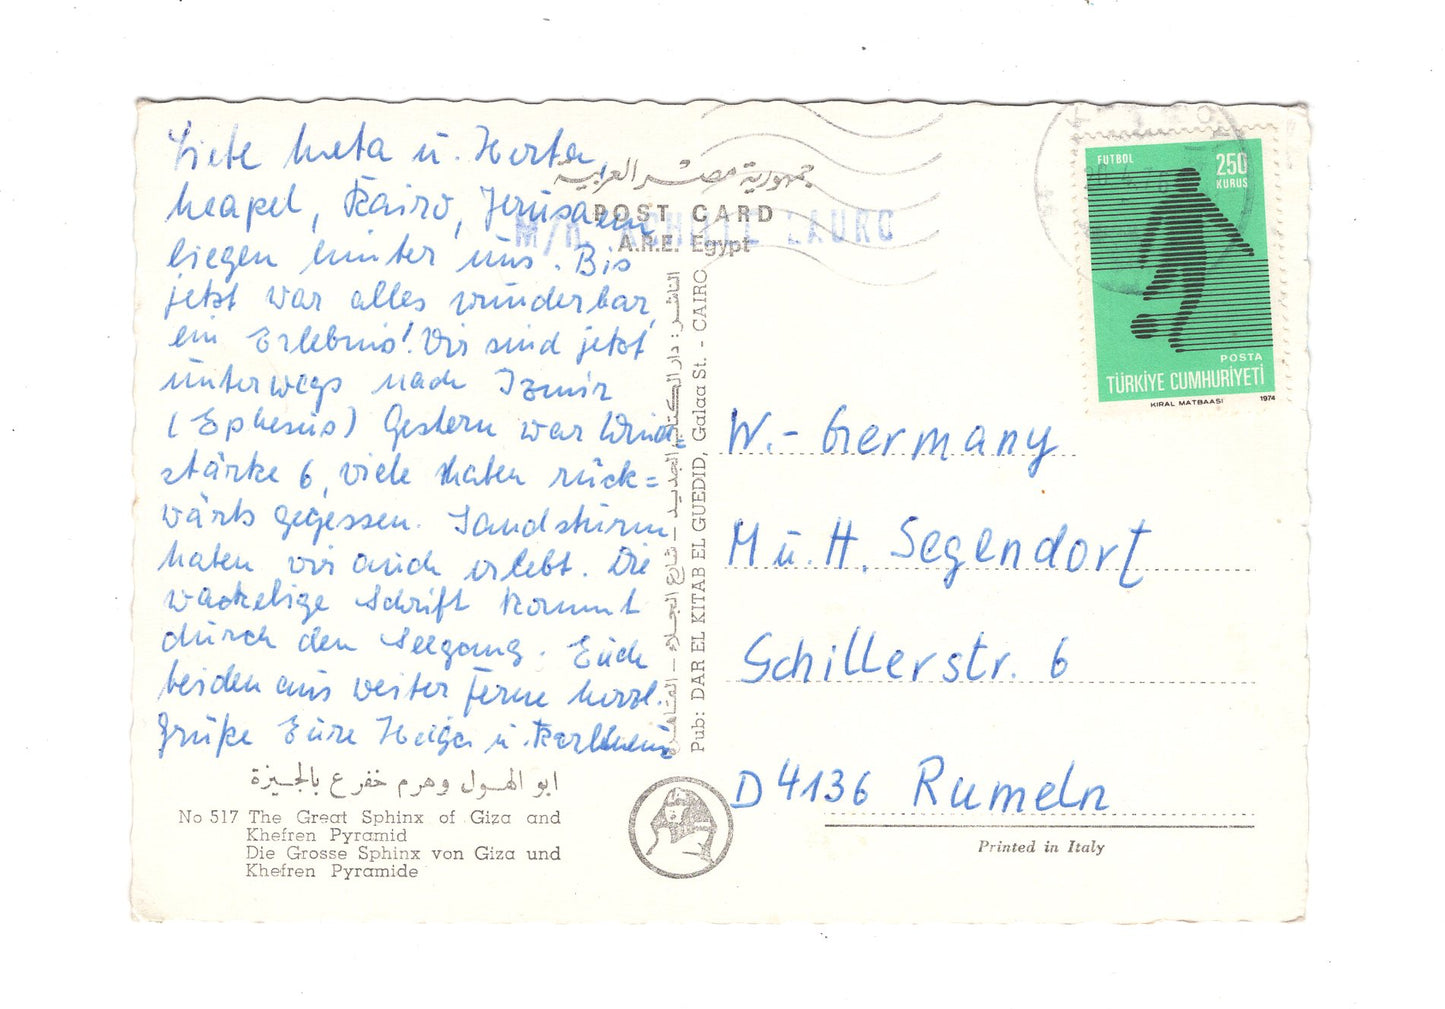 Liebe Meta u. Herta,
Neapel, Kairo, Jerusalem
liegen hinter uns. Bis
jetzt war alles wunderbar,
ein Erlebnis! Wir sind jetzt
unterwegs nach Izmir
(Ephesus) Gestern war Wind=
stärke 6, viele haben rück=
wärts gegessen. Sandsturm
haben wir auch erlebt. Die
wackelige Schrift kommt
durch den Seegang. Euch
beiden aus weiter Ferne herzl.
Grüße Eure Helga u. Karlheinz
جمهورية مصر العربية
POST CARD
A.R.E. Egypt
M/N ACHILLE LAURO
الناشر: دار الكتاب الجديد – شارع الجلاء – القاهرة
Pub: DAR EL KITAB EL GUEDID, Galaa St. - CAIRO
FUTBOL
250
KURUŞ
POSTA
TÜRKİYE CUMHURİYETİ
KIRAL MATBAASI 1974
W.- Germany
M u. H. Segendorf
Schillerstr. 6
D 4136 Rumeln
Printed in Italy
ابو الهول وهرم خفرع بالجيزة
No 517 The Great Sphinx of Giza and
Khefren Pyramid
Die Grosse Sphinx von Giza und
Khefren Pyramide